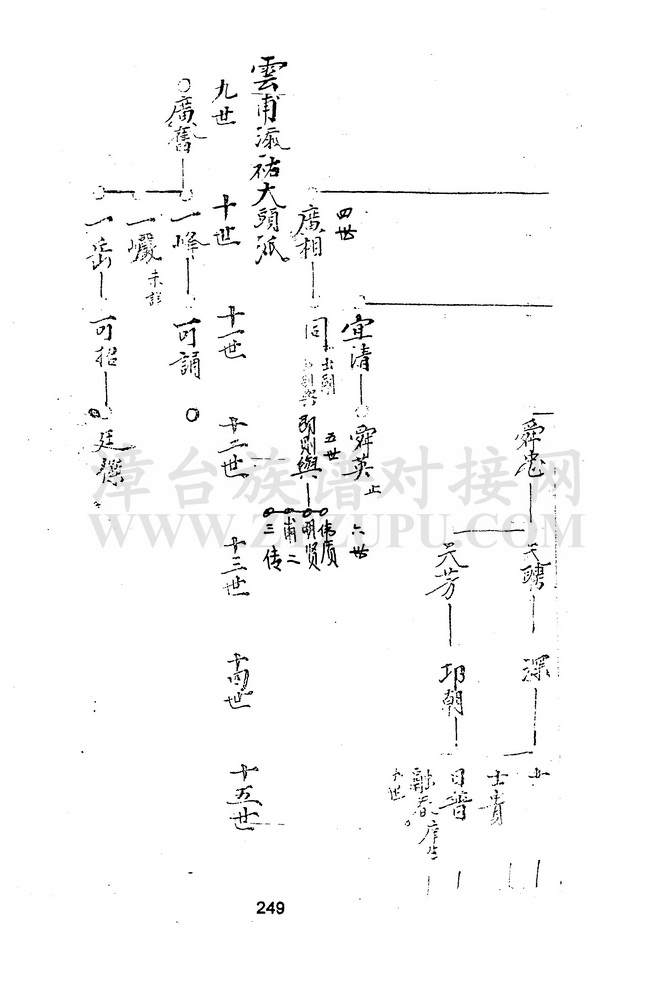 舜忠
天聘
深
士貴
天芳
邛朝
日普
宜清
舜英止
四世
五世
六世
廣相
同
即則與
伟质
明贤
甫二
三传
雲甫派祐大頭派
九世
十世
十一世
十二世
十三世
十四世
十五世
廣舊
一峰
可誦
一巖未詳
一岳
可招
廷傑
漳台族谱对接网
WWW.ZTZUPU.COM
249